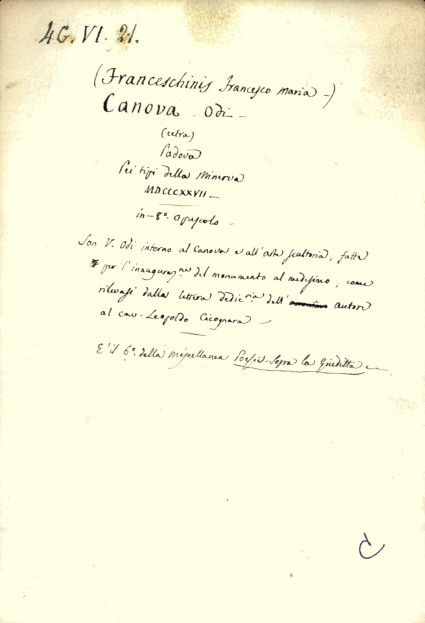 4G. VI. 21.
(Franceschinis Francesco Maria -)
Canova. Odi -
(cetra)
Padova
Pei tipi della Minerva
MDCCCXXVII -
in-8º. Opuscolo -
Son V. Odi intorno al Canova e all'arte scultoria, fatte
per l'inauguraz.ne del monumento al medesimo, come
rilevasi dalla lettera dedic.ria dell' autore
al cav. Leopoldo Cicognara -
E' il 6º. della miscellanea Poesie sopra la Giuditta -